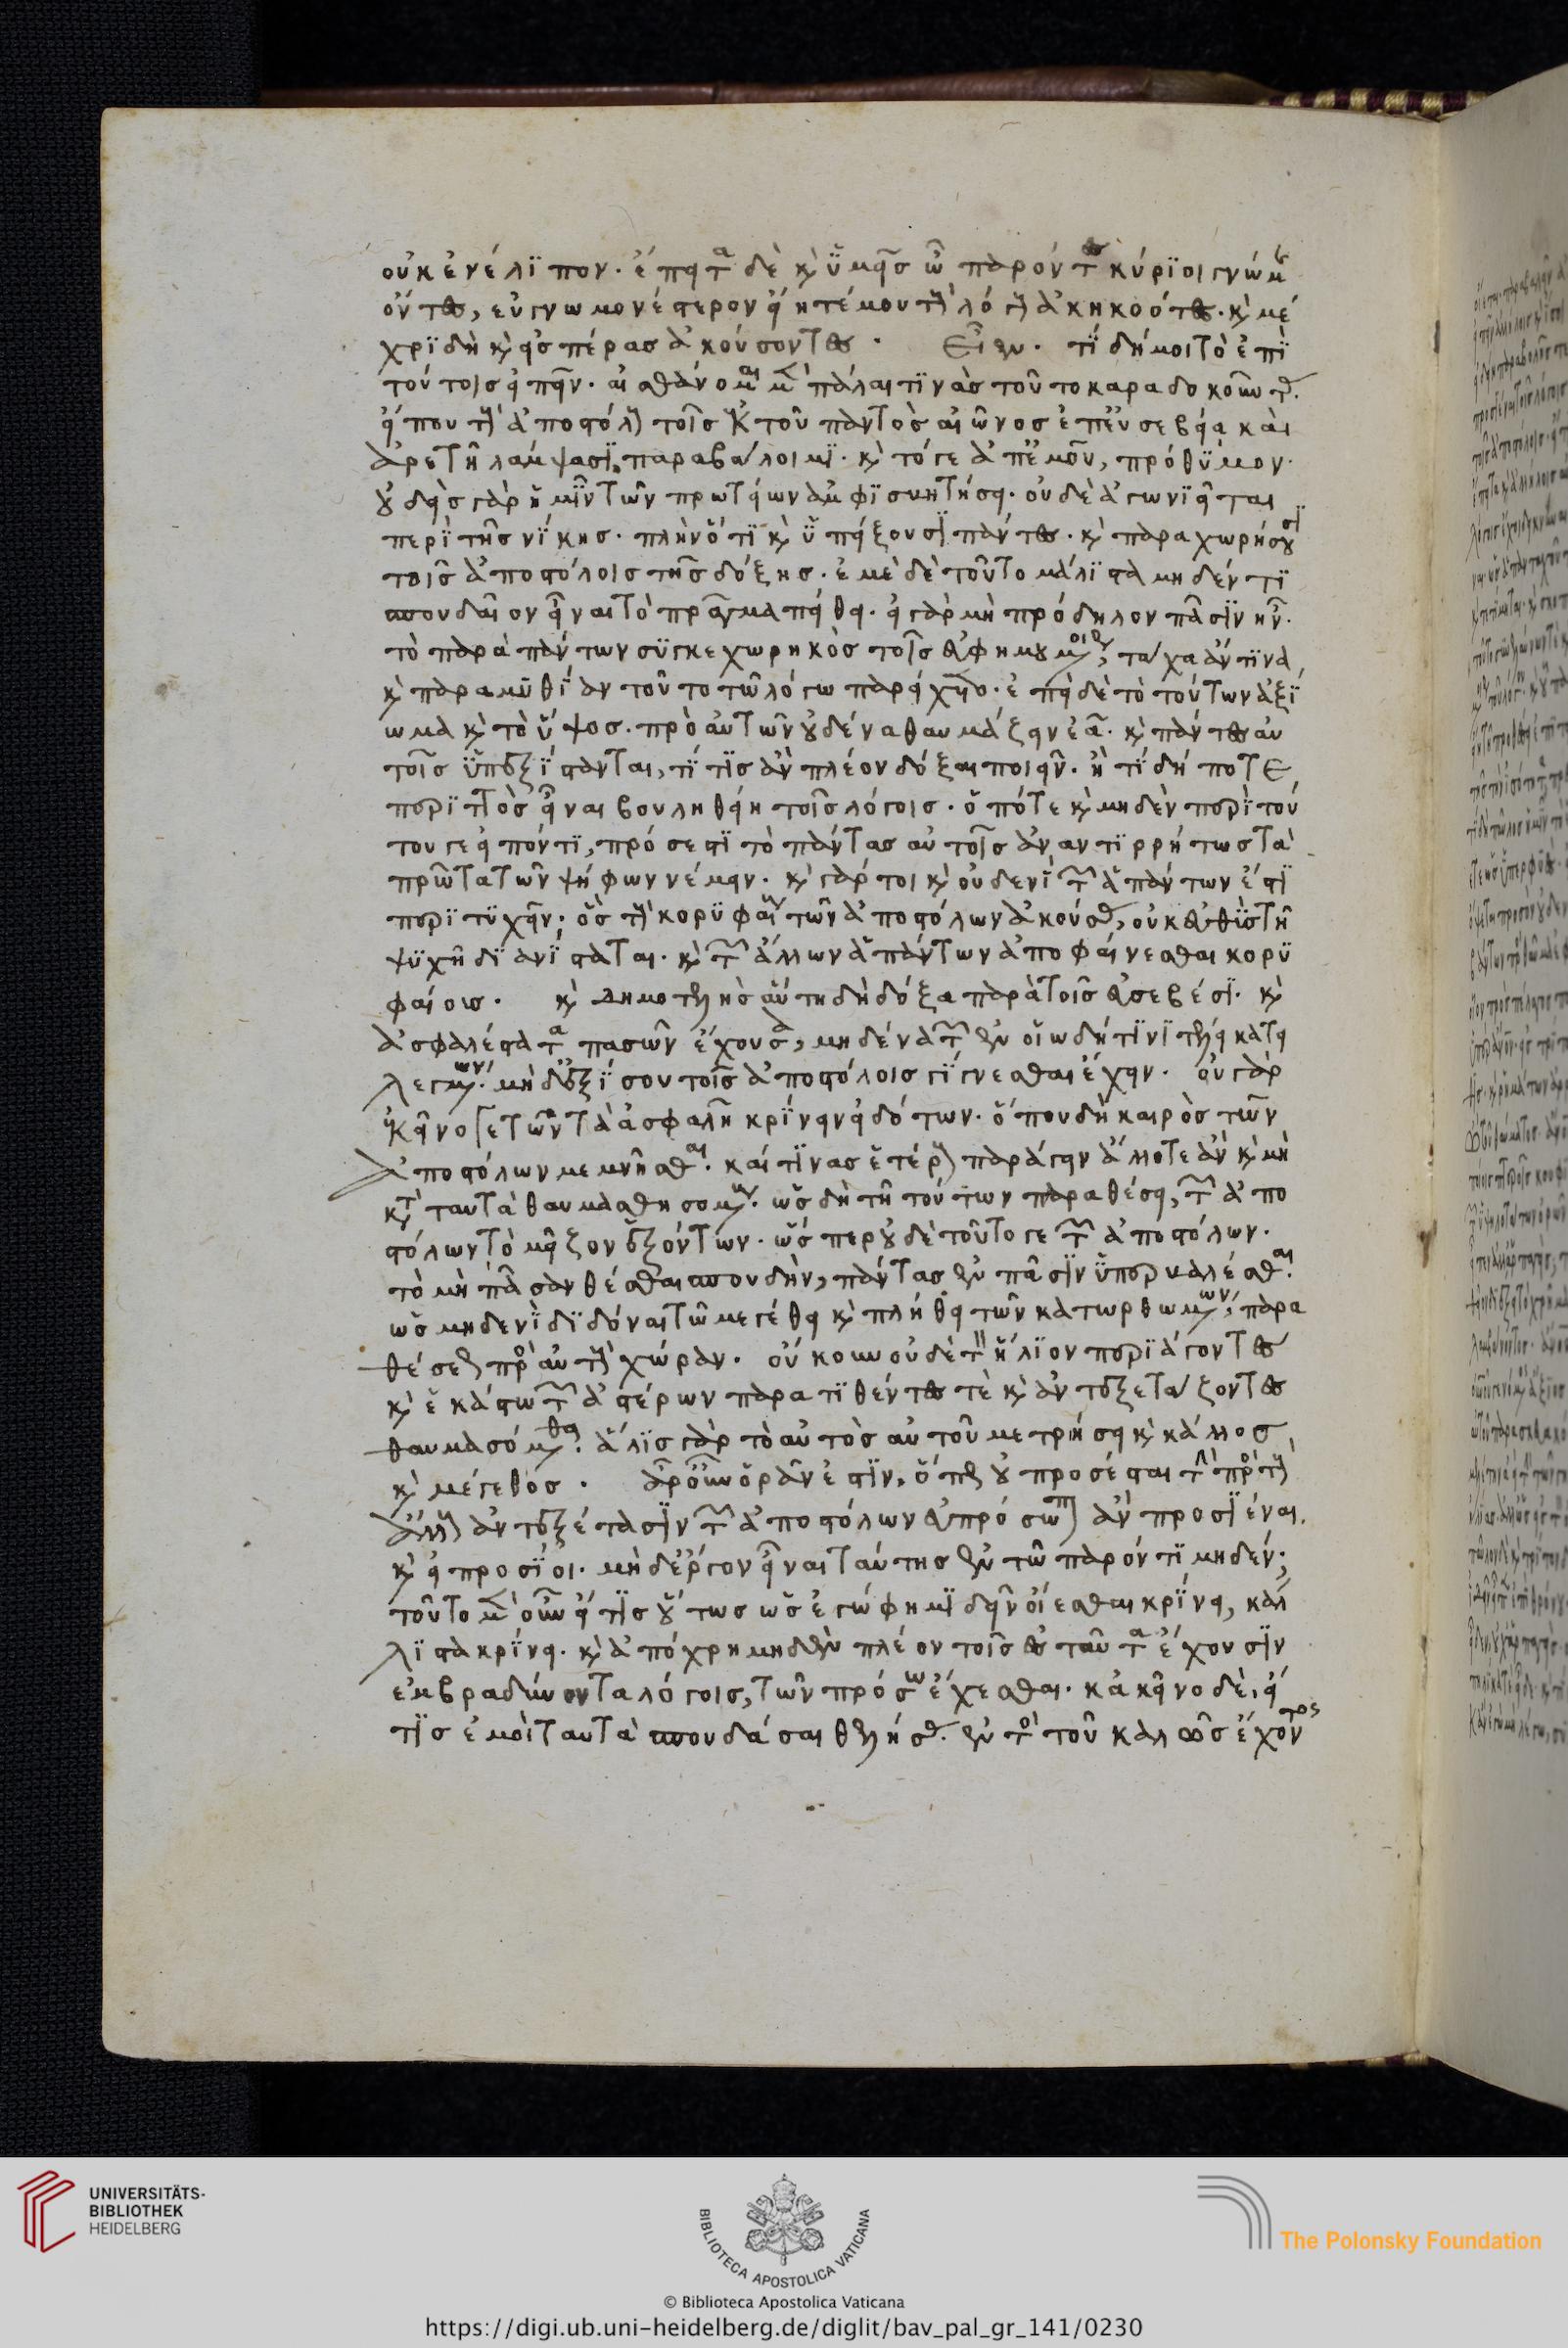 οὐκ ἐνέλιπον. ἔπειτα δὲ καὶ ὑμεῖς ὦ παρόντες κύριοι γνώμης
ὄντες, εὐγνωμονέστερον εἴητέ μου τῶν λόγων ἀκηκοότες. καὶ μέ
χρι δὴ καὶ εἰς πέρας ἀκούσοντες. Εἶεν. τί δή μοι τὸ ἐπὶ
τούτοις εἰπεῖν. αἰσθάνομαι μὲν πάλαι τινὰς τοῦτο καραδοκοῦντας.
εἴ που τῶν ἀποστόλων τοῖς ἐκ τοῦ παντὸς αἰῶνος ἐπ' εὐσεβείᾳ καὶ
ἀρετῇ λάμψασι, παραβάλοιμι. καὶ τό γε ἀπ' ἐμοῦ, πρόθυμον.
οὐδεὶς γὰρ ἡμῖν τῶν πρωτείων ἀμφισβητήσει. οὐδὲ ἀγωνιεῖται
περὶ τῆς νίκης. πλὴν ὅτι καὶ ὑπείξουσι πάντες. καὶ παραχωρήσουσι
τοῖς ἀποστόλοις τῆς δόξης. ἐμὲ δὲ τοῦτο μάλιστα μηδέν τι
σπουδαῖον εἶναι τὸ πρᾶγμα πείθει. εἰ γὰρ μὴ πρόδηλον πᾶσιν ἦν.
τὸ παρὰ πάντων συγκεχωρηκὸς τοῖς εὐφημουμένοις, τάχα ἄν τινα
καὶ παραμυθίαν τοῦτο τῷ λόγῳ παρείχετο. ἐπεὶ δὲ τὸ τούτων ἀξί
ωμα καὶ τὸ ὕψος. πρὸ αὐτῶν οὐδένα θαυμάζειν ἐᾷ. καὶ πάντες αὐ
τοῖς ὑπεξίστανται, τί τις ἂν πλέον δόξαι ποιεῖν. ἢ τί δή ποτε
περιττὸς εἶναι βουληθείη τοῖς λόγοις. ὁπότε καὶ μηδὲν περὶ τού
του γε εἰπόντι, πρόσεστι τὸ πάντας αὐτοῖς ἀναντιρρήτως τὰ
πρῶτα τῶν ψήφων νέμειν. καὶ γάρ τοι καὶ οὐδενὶ τῶν ἁπάντων ἔστι
περιτυχεῖν, ὃς τὴν κορυφαίαν τῶν ἀποστόλων ἀκούσας, οὐκ εὐθὺς τῇ
ψυχῇ διανίσταται. καὶ τῶν ἄλλων ἁπάντων ἀποφαίνεσθαι κορυ
φαίους. καὶ δημοτελὴς αὕτη δὴ δόξα παρὰ τοῖς εὐσεβέσι. καὶ
ἀσφαλέστατα πασῶν ἔχουσα, μηδένα τῶν ἐν οἵῳ δήτινι τέλει κατει
λεγμένων. μὴ δ' ἐξίσου τοῖς ἀποστόλοις γίγνεσθαι ἔχειν. οὐ γὰρ
ἐκεῖνός γε τῶν τὰ ἀσφαλῆ κρίνειν εἰδότων. ὅπου δὴ καιρὸς τῶν
ἀποστόλων μεμνῆσθαι. καί τινας ἑτέρων παράγειν ἄλλοτε ἂν καὶ μὴ
κατὰ ταυτὰ θαυμασθησομένους. ὡς δὴ τῇ τούτων παραθέσει, τῶν ἀπο
στόλων τὸ μεῖζον ἑξόντων. ὥσπερ οὐδὲ τοῦτό γε τῶν ἀποστόλων.
τὸ μὴ πᾶσαν θέσθαι σπουδὴν, πάντας ἐν πᾶσιν ὑπερβαλέσθαι.
ὡς μηδενὶ διδόναι τῷ μεγέθει καὶ πλήθει τῶν κατωρθωμένων, παρα
θέσεως πρὸς αὐτοὺς χώραν. οὔκουν οὐδὲ τὸν ἥλιον περιάγοντες
καὶ ἑκάστῳ τῶν ἀστέρων παρατιθέντες τὲ καὶ ἀντεξετάζοντες
θαυμασόμεθα. ἅλις γὰρ τὸ αὐτὸς αὐτοῦ μετρήσει καὶ κάλλος
καὶ μέγεθος. ἆρ' οὖν ὁρᾶν ἐστιν, ὅπως οὐ προσέσται τῇ πρὸς τοὺς
ἄλλους ἀντεξετάσιν τῶν ἀποστόλων εὐπρόσωπον ἂν προσιέναι.
καὶ εἰ προσίοι. μὴ δ' ἔργον εἶναι ταύτης ἐν τῷ παρόντι μηδέν;
τοῦτο μὲν οὖν εἴ τις οὕτως ὡς ἐγώ φημι δεῖν οἴεσθαι κρίνει, κάλ
λιστα κρίνει. καὶ ἀπόχρη μηδὲν πλέον τοῖς ἐνταῦθα ἔχουσιν
ἐμβραδύνοντα λόγοις, τῶν πρόσω ἔχεσθαι. κἀκεῖνο δὲ, εἴ
τις ἐμοὶ ταυτὰ σπουδάσαι θελήσας. ἐν τῷ τοῦ καλῶς ἔχοντος
UNIVERSITÄTS-
BIBLIOTHEK
HEIDELBERG
BIBLIOTECA APOSTOLICA VATICANA
The Polonsky Foundation
© Biblioteca Apostolica Vaticana
https://digi.ub.uni-heidelberg.de/diglit/bav_pal_gr_141/0230